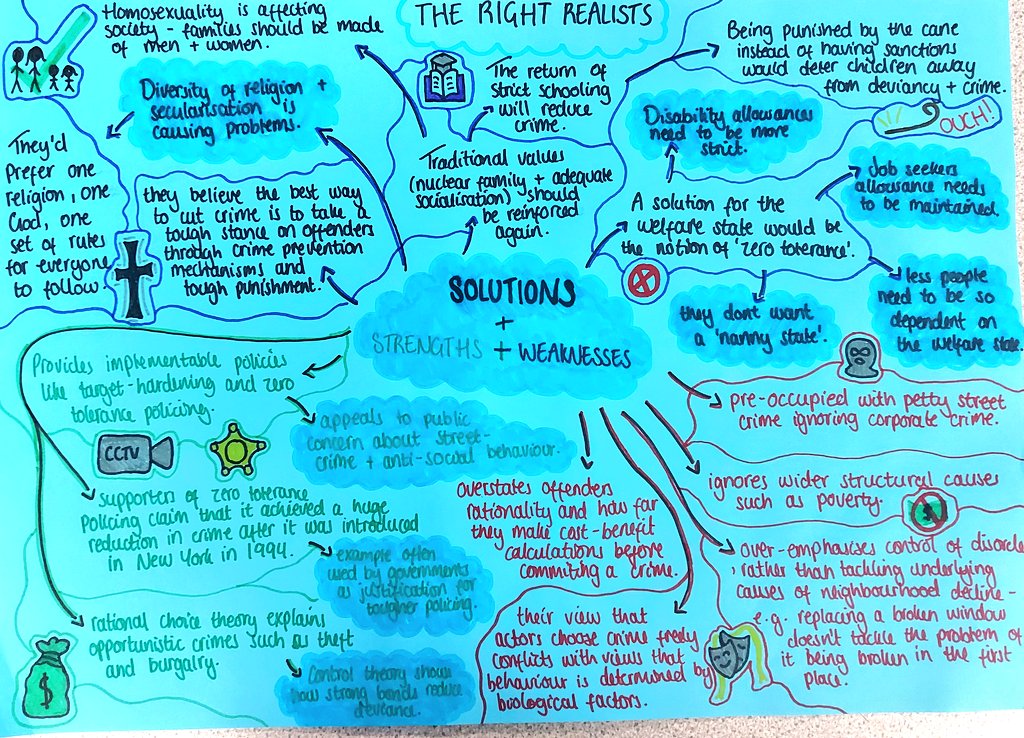 THE RIGHT REALISTS
Homosexuality is affecting
society - families should be made
of men + women.
Diversity of religion +
secularisation is
causing problems.
They'd
prefer one
religion, one
God, one
set of rules
for everyone
to follow
they believe the best way
to cut crime is to take a
tough stance on offenders
through crime prevention
mechanisms and
tough punishment.
The return of
strict schooling
will reduce
crime.
Traditional values
(nuclear family + adequate
socialisation) should
be reinforced
again.
Being punished by the cane
instead of having sanctions
would deter children away
from deviancy + crime.
OUCH!
Disability allowances
need to be more
strict.
Job seekers
allowance needs
to be maintained.
A solution for the
welfare state would be
the notion of 'zero tolerance'.
they dont want
a 'nanny state'.
less people
need to be so
dependent on
the welfare state.
SOLUTIONS
+
STRENGTHS + WEAKNESSES
Provides implementable policies
like target-hardening and zero
tolerance policing.
CCTV
appeals to public
concern about street-
crime + anti-social behaviour.
supporters of zero tolerance
policing claim that it achieved a huge
reduction in crime after it was introduced
in New York in 1994.
example often
used by governments
as justification for
tougher policing.
rational choice theory explains
opportunistic crimes such as theft
and burgalry.
$
Control theory shows
how strong bonds reduce
deviance.
overstates offenders
rationality and how far
they make cost-benefit
calculations before
commiting a crime.
their view that
actors choose crime freely
conflicts with views that
behaviour is determined by
biological factors.
pre-occupied with petty street
crime ignoring corporate crime.
ignores wider structural causes
such as poverty.
$
over-emphasises control of disorde
, rather than tackling underlying
causes of neighbourhood decline -
e.g. replacing a broken window
doesn't tackle the problem of
it being broken in the first
place.